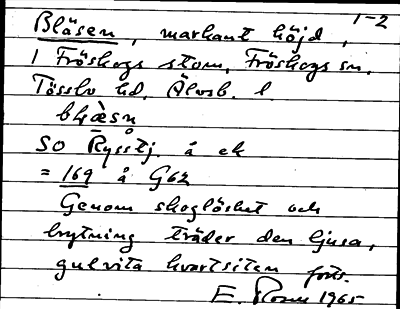 1-2
Blåsen, markant höjd,
1 Fröskogs stom, Fröskogs sn,
Tössbo hd, Älvsb. l
blåsn
SO Rysstj. å ek
= 169 å G62
Genom skoglöshet och
brytning träder den ljusa,
gulvita kvartsiten forts.
E. 1965